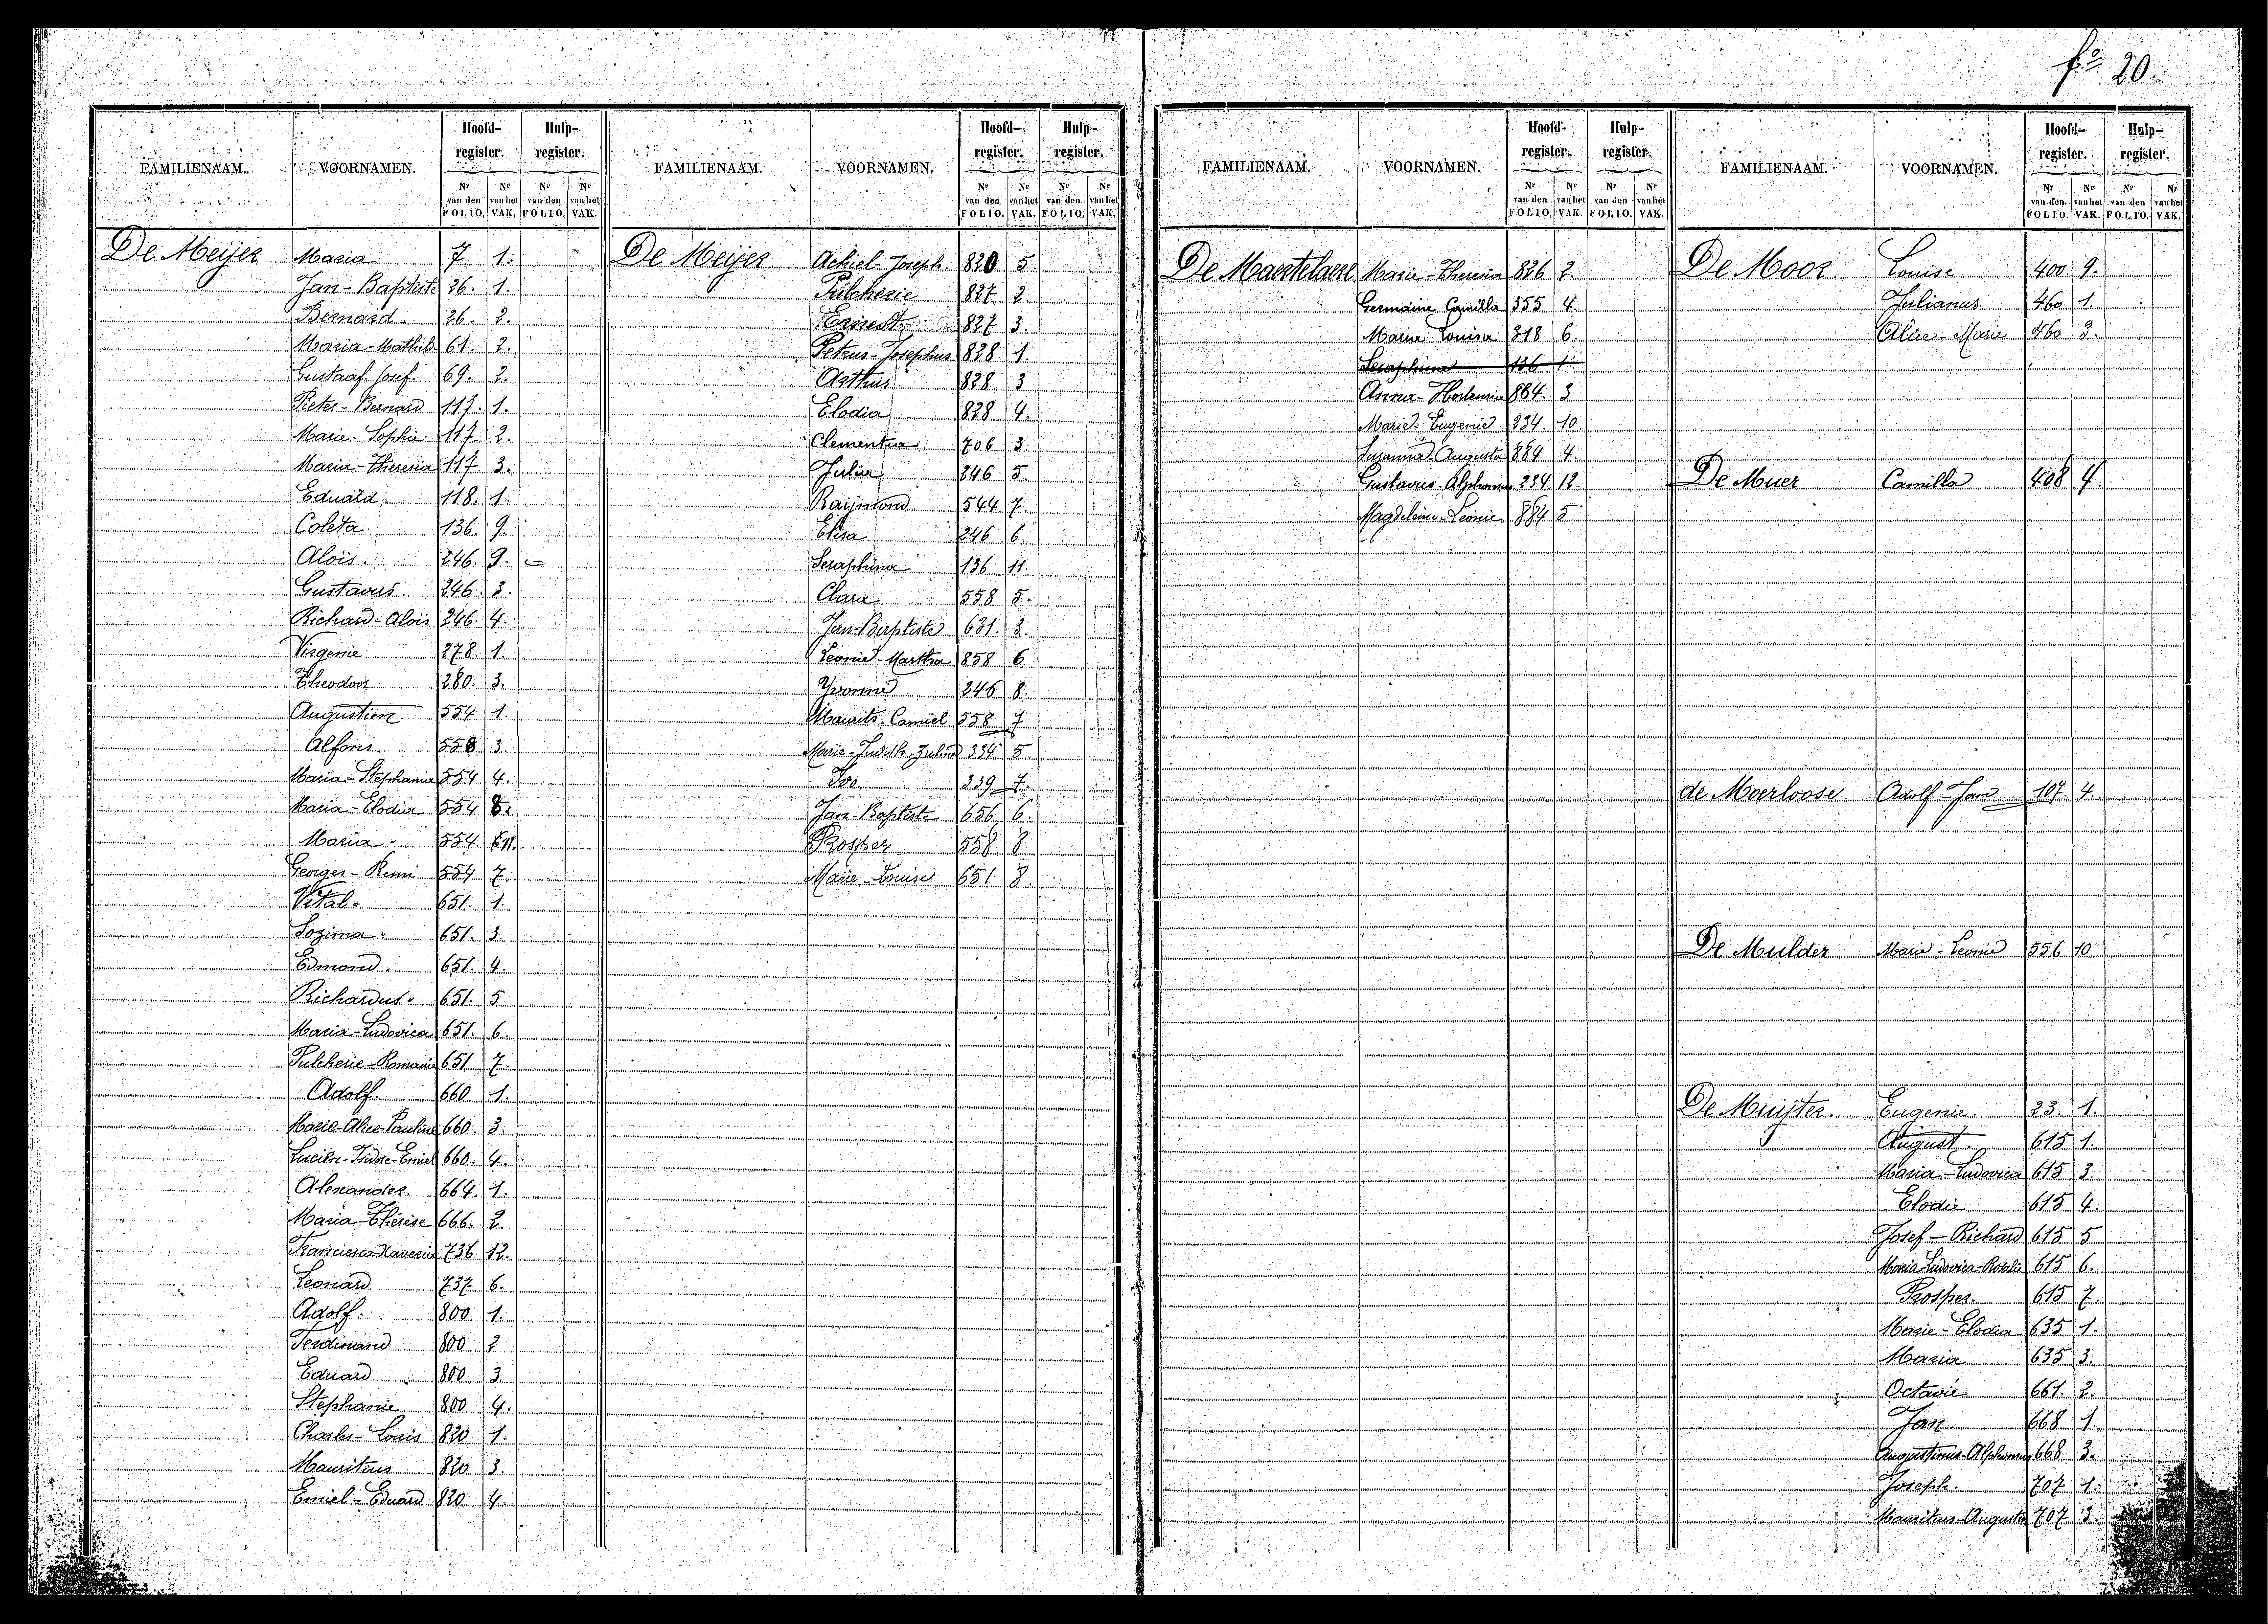 fo 20.
FAMILIENAAM. VOORNAMEN. Hoofd-register. Hulp-register. FAMILIENAAM. VOORNAMEN. Hoofd-register. Hulp-register. FAMILIENAAM. VOORNAMEN. Hoofd-register. Hulp-register. FAMILIENAAM. VOORNAMEN. Hoofd-register. Hulp-register.
Nr van den FOLIO. Nr van het VAK. Nr van den FOLIO. Nr van het VAK. Nr van den FOLIO. Nr van het VAK. Nr van den FOLIO. Nr van het VAK. Nr van den FOLIO. Nr van het VAK. Nr van den FOLIO. Nr van het VAK. Nr van den FOLIO. Nr van het VAK. Nr van den FOLIO. Nr van het VAK.
De Meijer Maria 7 1.
Jan-Baptiste 26. 1.
Bernard 26. 2.
Maria-Mathild 61. 2.
Gustaaf Josef. 69. 2.
Pieter-Bernard 117. 1.
Marie-Sophie 117. 2.
Maria-Theresia 117. 3.
Eduard. 118. 1.
Coleta. 136. 9.
Aloïs. 246. 9.
Gustavus. 246. 3.
Richard-Aloïs 246. 4.
Virgenie 278. 1.
Theodoor 280. 3.
Augustien 554 1.
Alfons 558 3.
Maria-Stephania 554 4.
Maria-Elodia 554 8.
Maria. 554.
Georges-Remi 554 7.
Vital. 651. 1.
Sozima. 651. 3.
Edmond. 651. 4.
Richardus. 651. 5
Maria-Ludovica 651. 6.
Pulcherie-Romanie 651 7.
Adolf. 660 1.
Marie-Alice-Pauline 660. 3.
Lucien-Isidore-Emiel 660. 4.
Alexander. 664. 1.
Maria-Thérèse 666. 2.
Francisca-Xaveria 736 12.
Leonard 737 6.
Adolf. 800 1.
Ferdinand 800 2
Eduard 800 3.
Stephanie 800 4.
Charles-Louis 820 1.
Mauritius 820 3.
Emiel-Eduard 820 4.
De Meijer Achiel-Joseph. 820 5.
Pulcherie 827 2.
Ernest 827 3.
Petrus-Josephus. 828 1.
Arthur. 828 3
Elodia 828 4.
Clementia 706 3.
Julia 246 5.
Raijmond 544 7.
Elisa 246 6.
Seraphina 136 11.
Clara 558 5.
Jan-Baptiste 631. 3.
Leonie-Martha 858 6.
Yvonne 246 8.
Maurits-Camiel 558 7
Marie-Judith-Zulma 334 5.
Ivo. 339 7.
Jan-Baptiste 656 6.
Prosper 558 8
Marie-Louise 651 8.
De Maertelaere Marie-Theresia 826 2.
Germaine Camilla 355 4.
Maria Louisa 318 6.
Seraphina 136 11
Anna-Hortensia 864. 3
Marie-Eugenie 234 10.
Suzanna-Augusta 884 4.
Gustavus-Alphonsus 234 12
Magdeleine-Leonie 884 5
De Moor Louise 400 9.
Julianus 460 1.
Alice-Marie 460 3.
De Muer Camilla 408 4.
de Moerloose Adolf-Jan 107. 4.
De Mulder Marie-Leonie 556 10
De Muijter. Eugenie. 23. 1.
August. 615 1.
Maria-Ludovica 615 3.
Elodie 615 4.
Josef-Richard 615 5
Maria-Ludovica-Rosalie 615 6.
Prosper. 615 7.
Marie-Elodia 635 1.
Maria 635 3.
Octavie 661. 2.
Jan. 668 1.
Augustinus-Alphonsus 668 3.
Joseph. 707 1.
Mauritus-Augustin 707 3.